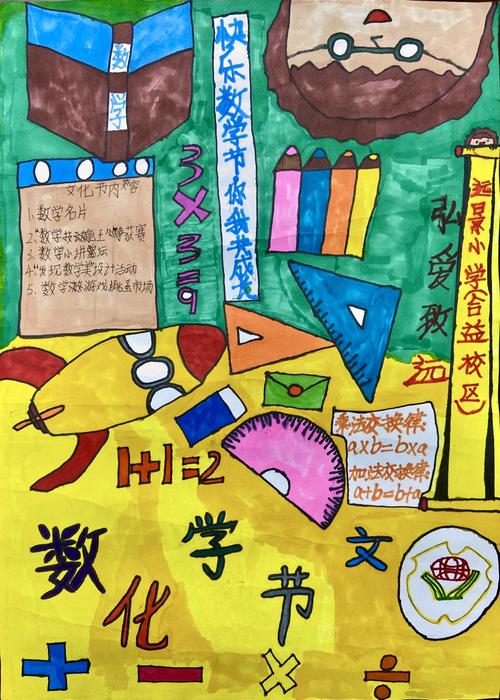 数学
快乐数学节你我共成长
文化节内容
1、数学名片
2、"数学技玩魔王"争霸赛
3、数学小讲坛
4、"发现数学美"设计活动
5、数学淘游戏挑逼市场
3×3=9
弘爱致远
远景小学(合益校区)
乘法交换律:
a×b=b×a
加法交换律:
a+b=b+a
1+1=2
数学文化节
+ − × ÷